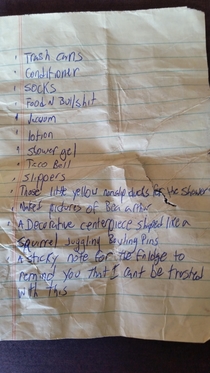 · Trash cans
· Conditioner
· Socks
· Food N Bullshit
· Vacuum
· lotion
· Shower gel
· Taco Bell
· Slippers
· Those little yellow nonslip ducks for the shower
· Naked pictures of Bea arthur
· A Decorative centerpiece shaped like a
Squirrel Juggling Bowling Pins
· A sticky note for the fridge to
remind you that I cant be trusted
with this